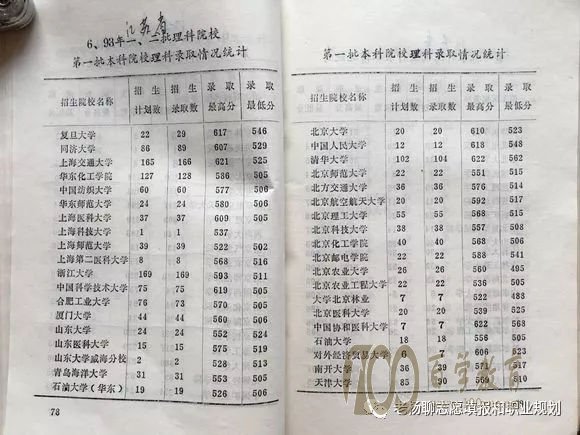 6、93年江苏省一、二批理科院校
第一批本科院校理科录取情况统计
招生院校名称 招生计划数 招生录取数 录取最高分 录取最低分
复旦大学 22 29 617 546
同济大学 86 89 607 529
上海交通大学 165 166 621 525
华东化工学院 127 128 586 505
中国纺织大学 60 60 577 506
华东师范大学 24 24 580 506
上海医科大学 37 37 609 505
上海科技大学 1 1 537
上海师范大学 39 39 522 502
上海第二医科大学 8 8 568 516
浙江大学 169 169 593 511
中国科学技术大学 75 76 619 550
合肥工业大学 76 73 570 505
厦门大学 44 44 560 506
山东大学 24 24 552 504
山东医科大学 15 15 575 519
山东大学威海分校 2 2 528 513
青岛海洋大学 31 31 553 505
石油大学（华东） 19 19 526 506
78
第一批本科院校理科录取情况统计
招生院校名称 招生计划数 招生录取数 录取最高分 录取最低分
北京大学 20 20 610 523
中国人民大学 12 13 618 548
清华大学 102 104 622 562
北京师范大学 22 22 551 515
北方交通大学 36 36 576 514
北京航空航天大学 20 20 592 517
北京理工大学 55 55 568 515
北京科技大学 38 38 568 508
北京化工学院 40 40 568 506
北京邮电学院 22 22 584 541
北京农业大学 26 26 560 495
北京农业工程大学 20 20 536 505
大学北京林业 7 7 522 488
北京医科大学 20 20 539 525
中国协和医科大学 7 7 622 568
石油大学 18 18 556 505
对外经济贸易大学 6 7 606 523
南开大学 31 36 569 508
天津大学 85 90 571 510
百学教育
老杨聊志愿填报和职业规划